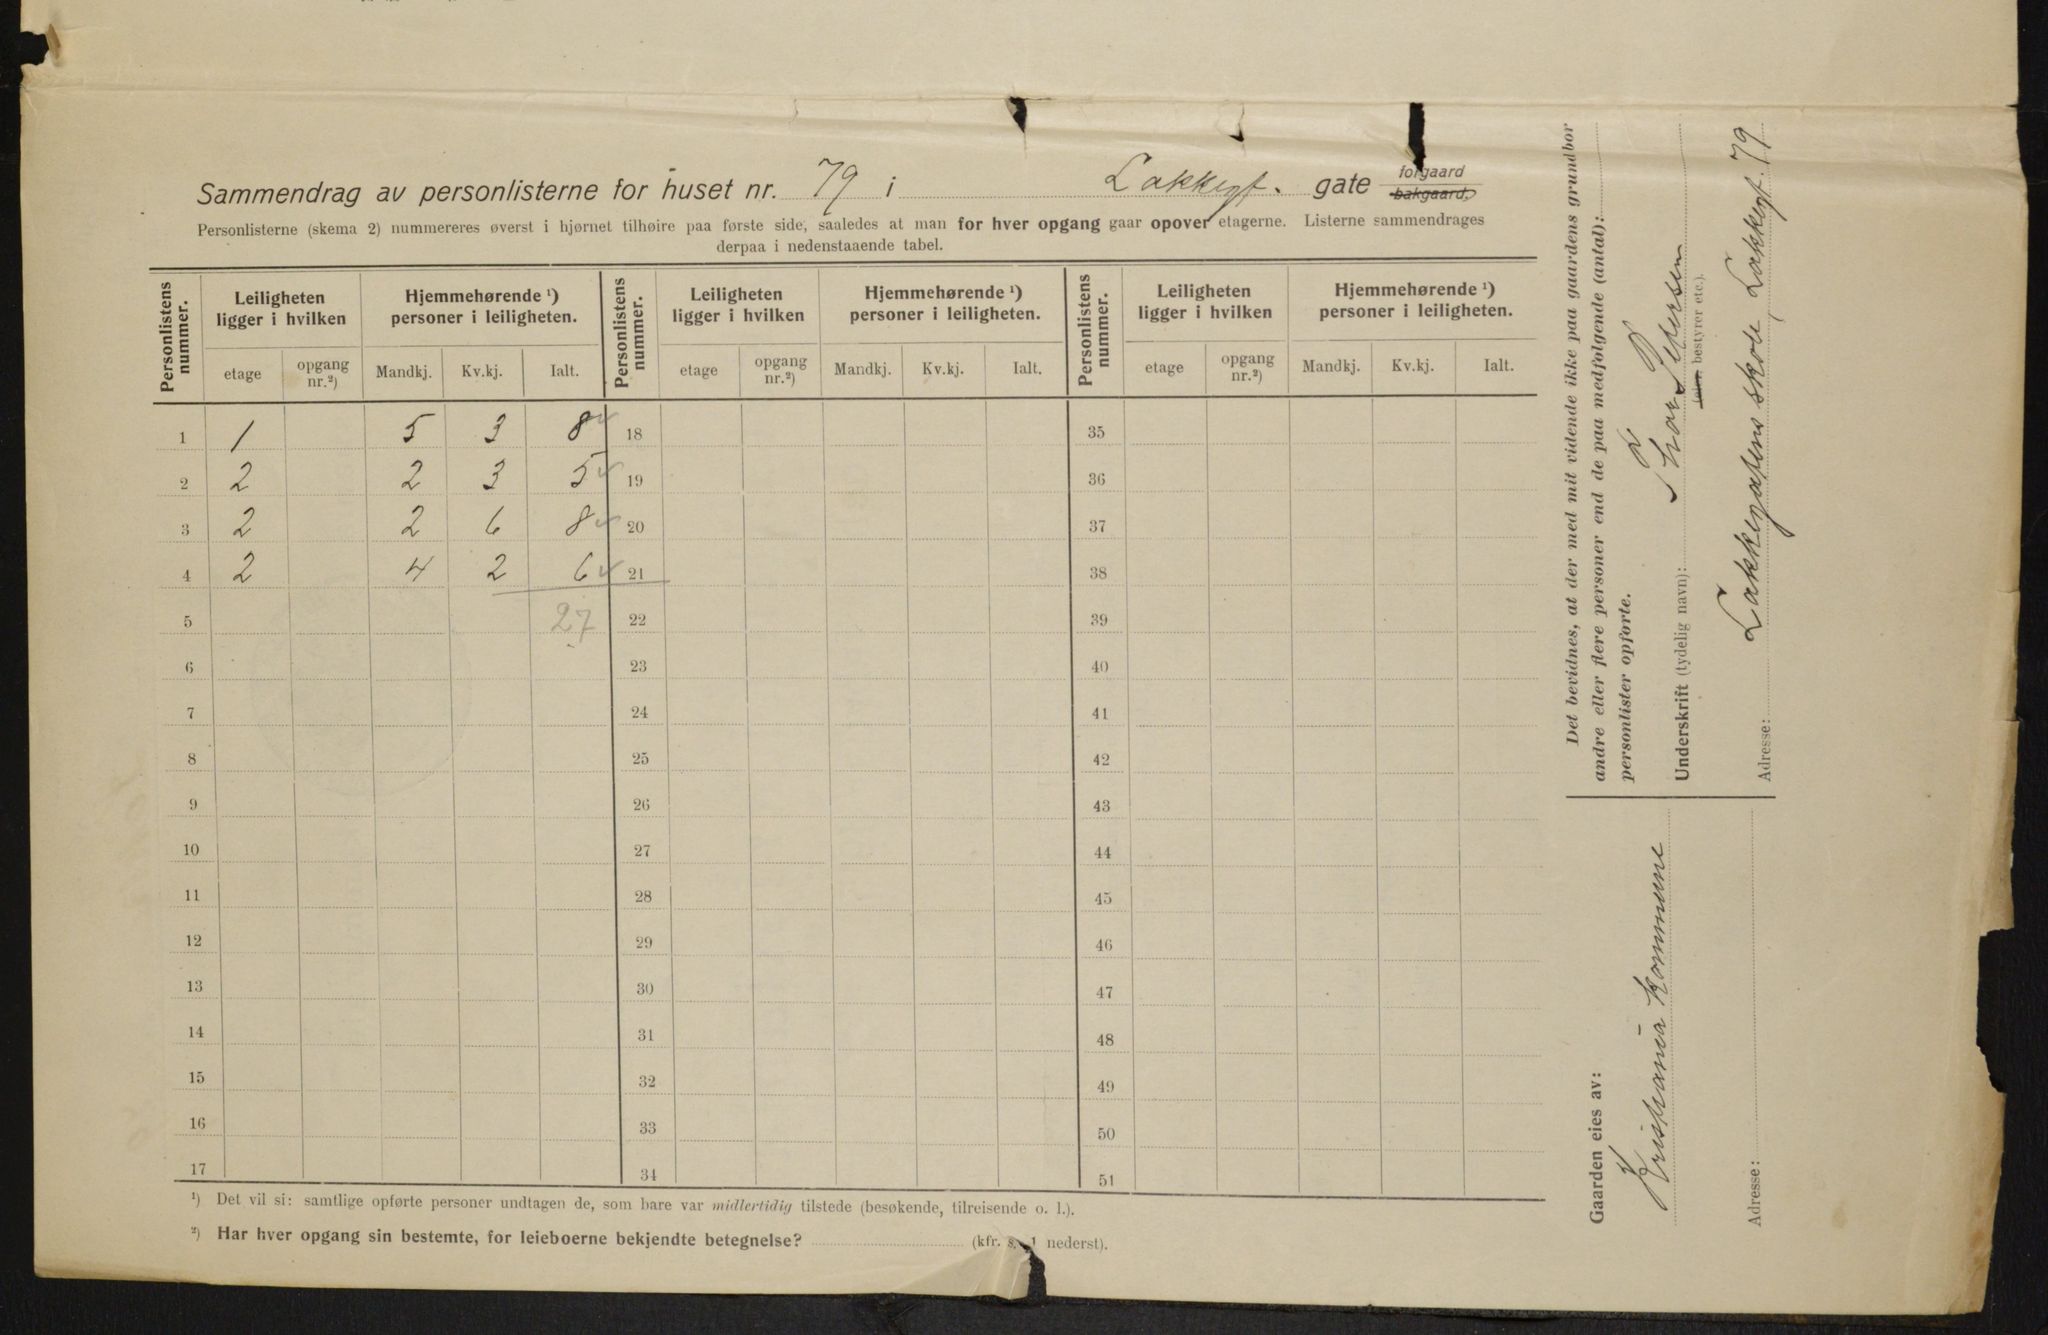 Sammendrag av personlisterne for huset nr. 79 i Lakkegt. gate forgaard
bakgaard.
Personlisterne (skema 2) nummereres øverst i hjørnet tilhøire paa første side, saaledes at man for hver opgang gaar opover etagerne. Listerne sammendrages
derpaa i nedenstaaende tabel.
Personlistens nummer. Leiligheten ligger i hvilken Hjemmehørende ¹) personer i leiligheten. Personlistens nummer. Leiligheten ligger i hvilken Hjemmehørende ¹) personer i leiligheten. Personlistens nummer. Leiligheten ligger i hvilken Hjemmehørende ¹) personer i leiligheten.
etage opgang nr.²) Mandkj. Kv.kj. Ialt. etage opgang nr.²) Mandkj. Kv.kj. Ialt. etage opgang nr.²) Mandkj. Kv.kj. Ialt.
1 1 5 3 8 18 35
2 2 2 3 5 19 36
3 2 2 6 8 20 37
4 2 4 2 6 21 38
5 27 22 39
6 23 40
7 24 41
8 25 42
9 26 43
10 27 44
11 28 45
12 29 46
13 30 47
14 31 48
15 32 49
16 33 50
17 34 51
¹) Det vil si: samtlige opførte personer undtagen de, som bare var midlertidig tilstede (besøkende, tilreisende o. l.).
²) Har hver opgang sin bestemte, for leieboerne bekjendte betegnelse? (kfr. s. 1 nederst).
Det bevidnes, at der med mit vidende ikke paa gaardens grundbor
andre eller flere personer end de paa medfølgende (antal):
personlister opførte.
Underskrift (tydelig navn): Thor Petersen
(eier bestyrer etc.).
Adresse: Lakkegatens skole, Lakkegt. 79
Gaarden eies av:
Kristiania kommune
Adresse: